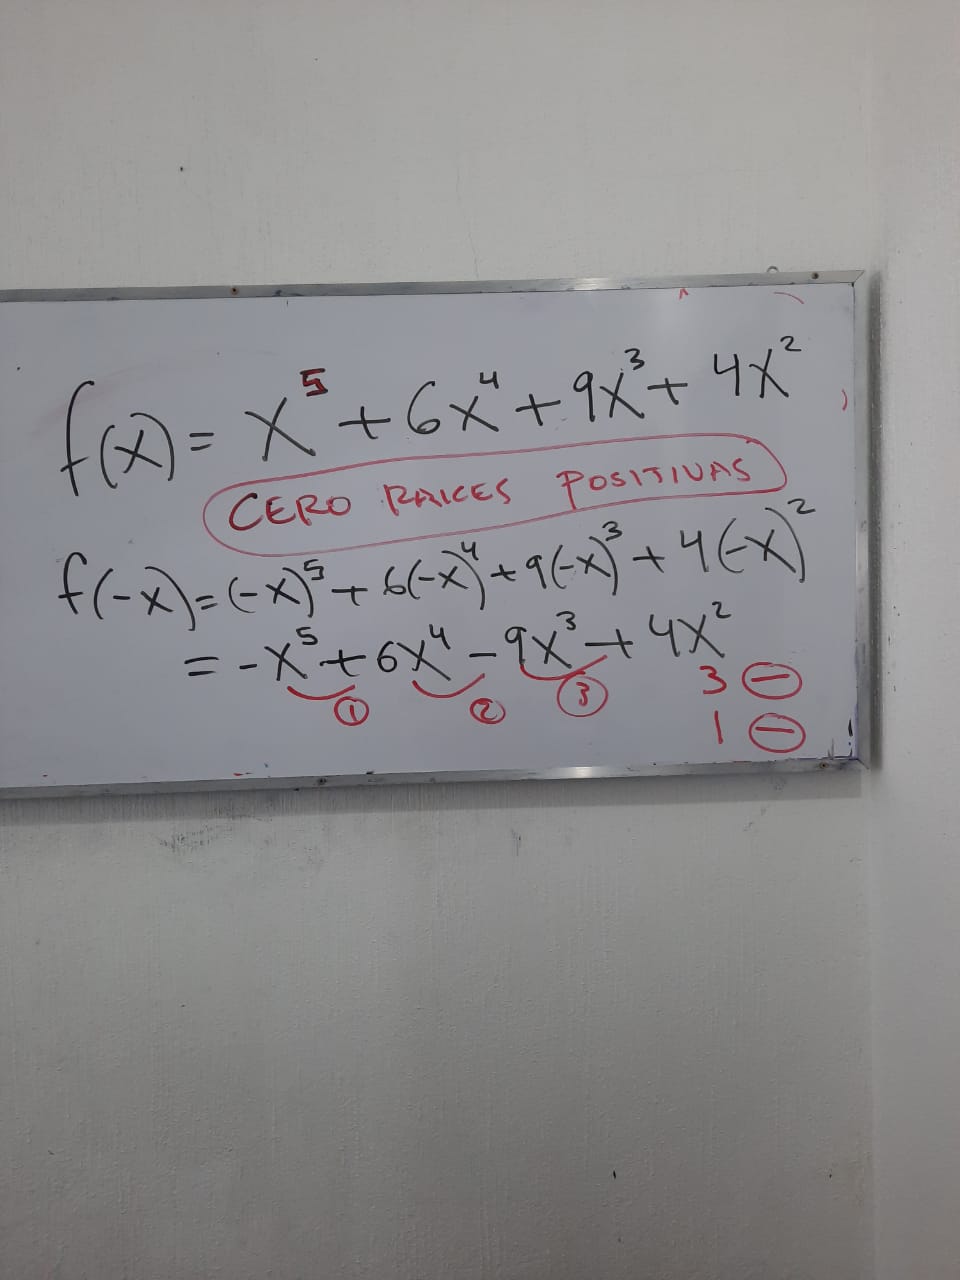 f(x) = x⁵ + 6x⁴ + 9x³ + 4x²
CERO RAICES POSITIVAS
f(-x) = (-x)⁵ + 6(-x)⁴ + 9(-x)³ + 4(-x)²
= -x⁵ + 6x⁴ - 9x³ + 4x²
① ② ③
3 ⊖
1 ⊖